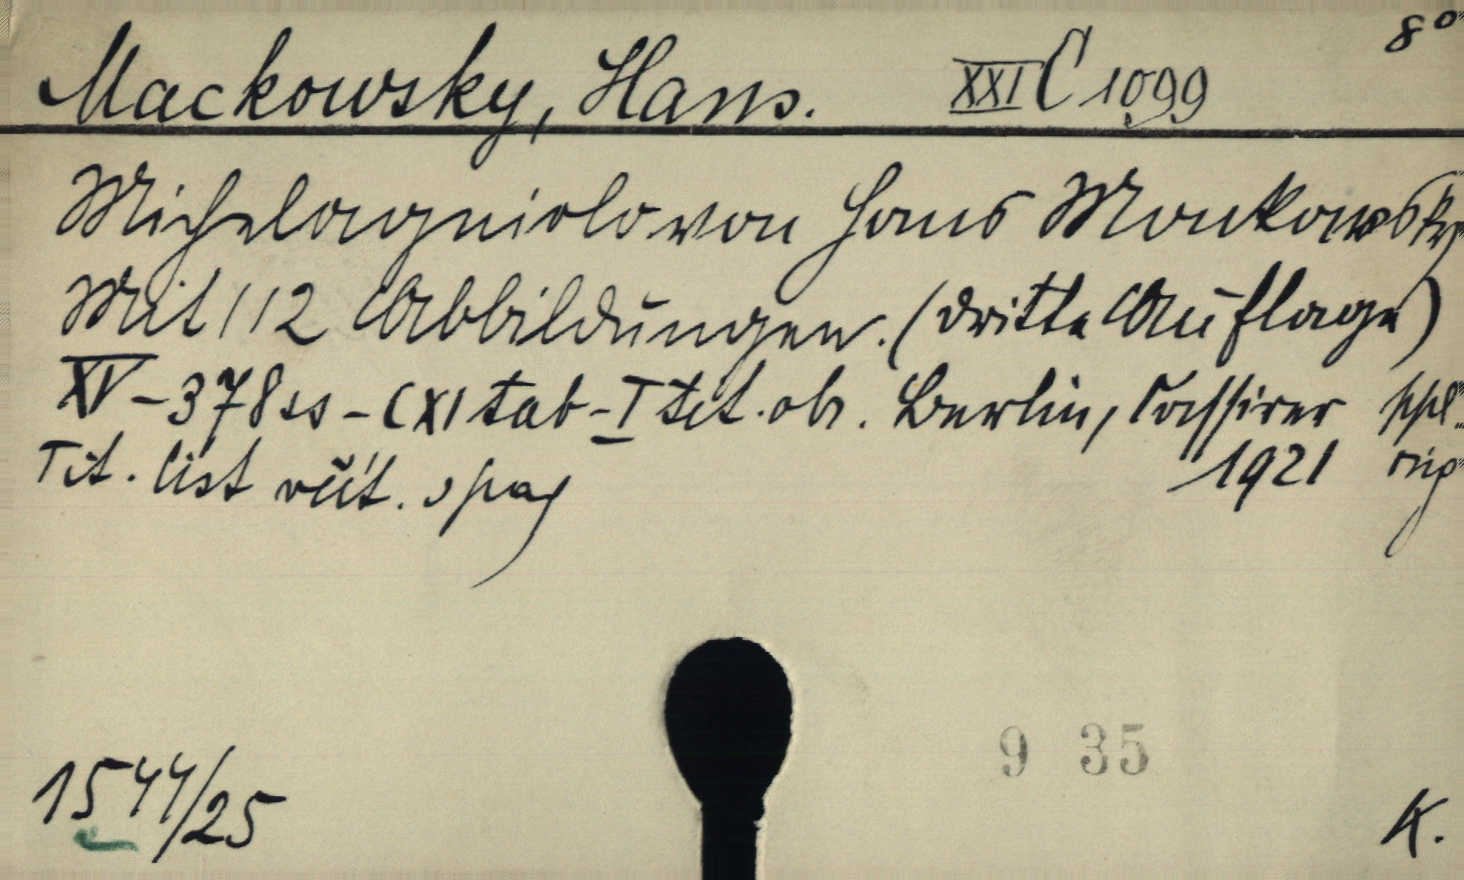 8°
Mackowsky, Hans. XXI C 1099
Michelagniolo von Hans Mackowsky
Mit 112 Abbildungen. (dritte Auflage)
XV - 378 ss - CXI tab - I tit. ob. Berlin, Cassirer
Tit. list 1921
1544/25
9 35
K.